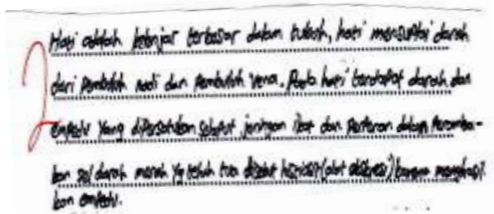 Hati adalah kelenjar terbesar dalam tubuh, hati mensuplai darah
dari pembuluh nadi dan pembuluh vena. Pada hati terdapat darah dan
empedu yang dipersatukan selaput jaringan ikat dan berperan dalam peromba-
kan sel darah merah yg telah tua disebut histiosit (alat ekskresi) karena menghasil
kan empedu.